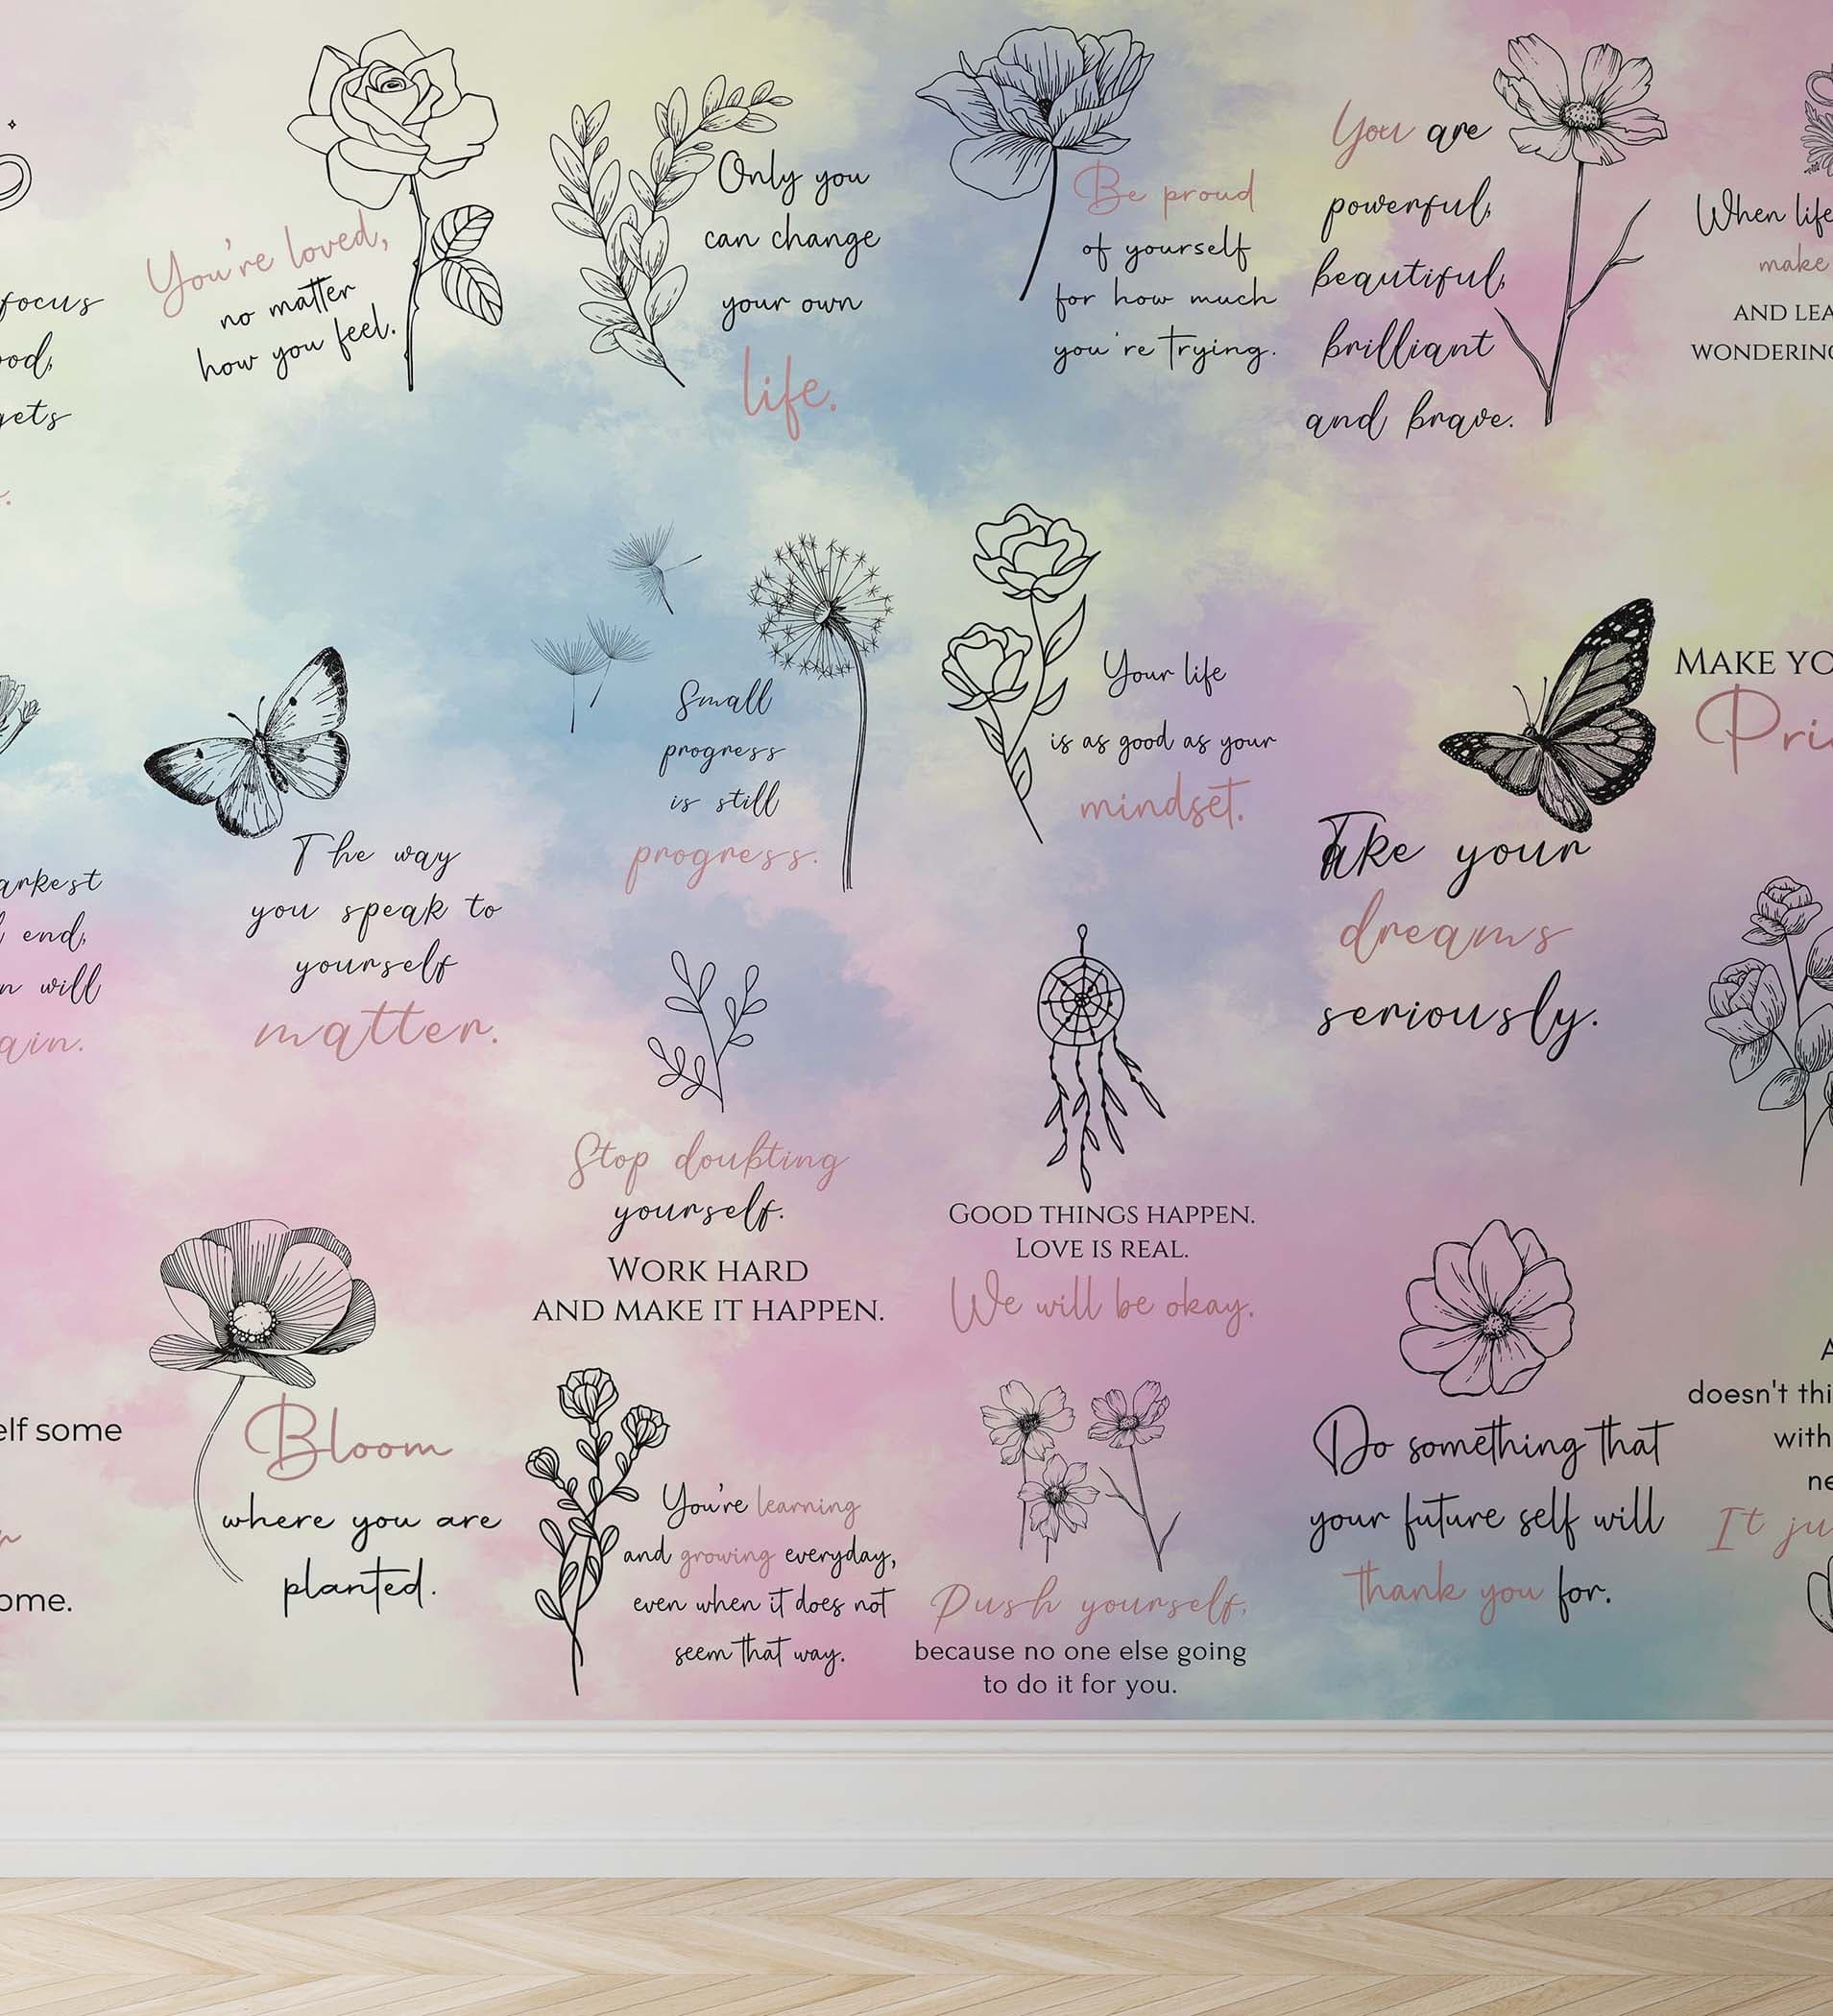 focus
gets
You're loved,
no matter
how you feel.
Only you
can change
your own
life.
Be proud
of yourself
for how much
you're trying.
You are
powerful,
beautiful,
brilliant
and brave.
When life
make
AND
WONDERING
end,
will
The way
you speak to
yourself
matter.
Small
progress
is still
progress.
Your life
is as good as your
mindset.
Take your
dreams
seriously.
MAKE
Stop doubting
yourself.
WORK HARD
AND MAKE IT HAPPEN.
GOOD THINGS HAPPEN.
LOVE IS REAL.
We will be okay.
some
Bloom
where you are
planted.
You're learning
and growing everyday,
even when it does not
seem that way.
Push yourself,
because no one else going
to do it for you.
Do something that
your future self will
thank you for.
doesn't
with
It